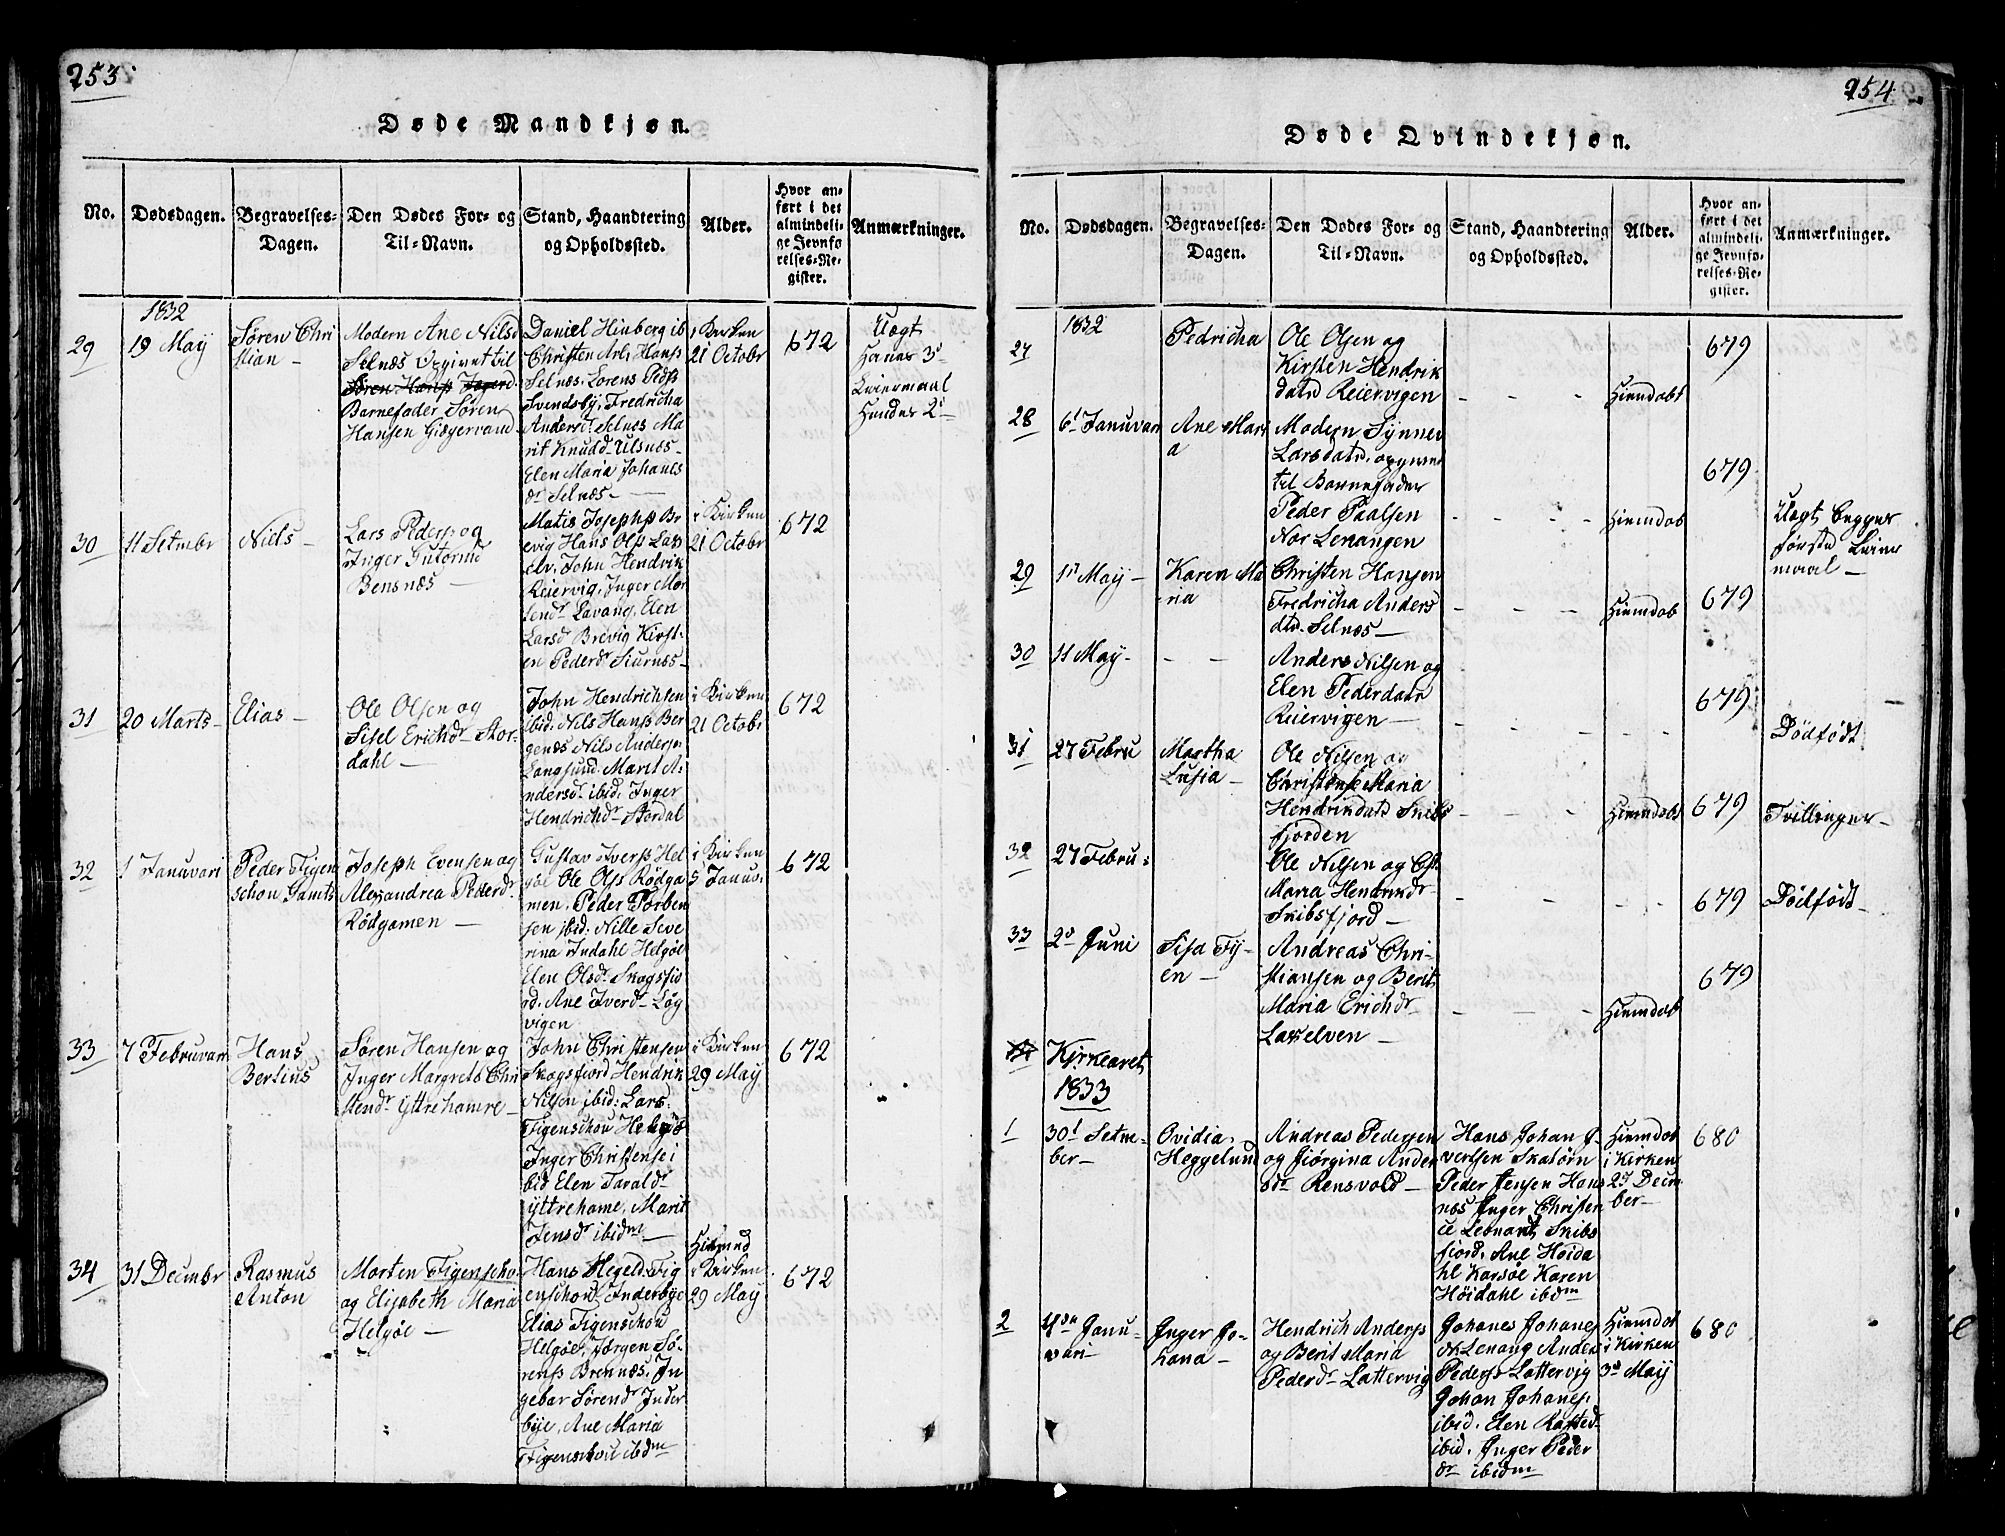 253
Døde Mandkjøn.
No.
Dødsdagen.
Begravelses-
Dagen.
Den Dødes For- og
Til-Navn.
Stand, Haandtering
og Opholdssted.
Alder.
Hvor an-
ført i det
almindeli-
ge Jevnfø
relses-Re-
gister.
Anmærkninger.
1832
29
19 May
Søren Chri
stian -
Modern Ane Nilsd
Selnæs Opgivet til
Søren Hanss
Barnefader Søren
Hansen GiæGervand
Daniel Hinberg ib
Christen Arl, Hanss
Selnæs. Lorens Pedss
Svendsby, Fredricha
Andersdr. Selnæs Ma
rit Knudd- Ulsnæs-
Elen Maria Johanes
dr Selnæs-
i Kirken
21 Octobr
672
Uægt
Hanes 3d
Leiermaal
Hendes 2d
30
11 Setmbr
Niels -
Lars Pederss og
Inger
Bensnæs -
Matis Josephss Br
evig Hans Olss Lax
elv. John Hendrik
Reiervig, Inger Mor
tend. Lavang, Elen
Larsd Brevig Kirst-
en Pederdr Siurnæs-
i Kirken
21 Octobr
672
31
20 Marts-
Elias -
Ole Olsen og
Sisel Erichdr Stor-
dahl -
John Hendrichsen
ibid. Nils Hanss Ber
genæs Nils Anderss
Langsund. Marit A-
ndersdr ibid, Inger
Hendrichdr Stordal
i Kirken
21 Octobr
672
32
1 Januvari
Peder Figen
schou Gamts
Joseph Evensen og
Alexandrea Pederdr
Rödgamen -
Gustav Iverss Hel
göe Ole Olss Rødga
men. Peder Torben
sen ibid: Nille Seve
rina Indahl Helgöe
Elen Olsdr Skogsfio
rd. Ane Iverd- Løg
vigen
i Kirken
5 Januv.
672
33
7 Februvar
Hans
Bertius
Søren Hansen og
Inger Margrete Chri
stendr yttrehamre-
John Christensen
Skogsfjord Hendrik
Nilsen ibid: Lars.
Figenschou Helgöe
Inger Christense i
bid Elen Taraldr
yttrehame, Marit
Jensdr ibidm-
i Kirken
29 May
672
34
31 Decmbr
Rasmus
Anton
Morten Figenscho.
og Elisabeth Maria
Helgöe -
Hans Hegeld. Fig
enschou Inderbye
Elias Figenschou
Helgöe, Jørgen Sö-
renss Brennæs, In
gebar Sørendr Inder
bye, Ane Maria
Figenschou ibdm
i Kirken
29 May
672
254
Døde Qvindekjøn.
No.
Dødsdagen.
Begravelses-
Dagen.
Den Dødes For- og
Til-Navn.
Stand, Haandtering
og Opholdssted.
Alder.
Hvor an-
ført i det
almindeli-
ge Jevnfø-
relses-Re-
gister.
Anmærkninger.
1832
27
Pedricha
Ole Olsen og
Kirsten Hendrik
datr Reiervigen
Hiemdøbt
679
28
6t Januvari
Ane Mari
a
Modern Synnev
Larsdatr, opgivne
til Barnefader
Peder Paalsen
Nor Lenangen
Hiemdøb
679
Uægt begges
første Leier
maal -
29
1st May -
Karen Ma
ria
Christen Hansen
Fredricha Anders
dtr. Selnæs-
Hiemdøb
679
30
11 May-
Anders Nilsen og
Elen Pederdatr
Reiervigen -
679
Dödfödt
31
27 Febru
Martha
Lusia -
Ole Nilsen og
Christense Maria
Hendrikdatr Skibs
fjorden
Hiemdøbt
679
Tvillinger-
32
27 Febru-
Ole Nilsen og Cst.
Maria Hendrikdr
Skibsfjord-
679
Dödfödt-
33
2d Juni
Sisa Fy-
en -
Andreas Chri-
stiansen og Berit
Maria Erichdr
Laxelven -
Hiemdøb
679
Kirkeaaret
1833
1
30t Setm-
ber-
Ovidia
Heggelund
Andreas Pedersen
og Jiörgina Ander
sdr Rensvold-
Hans Johan J-
vertsen Skatörn
Peder Jensen Hans
næs Inger Christen
ce Leonard, Skibs
fiord. Ane Høida
hl Karsöe Karen
Höidahl ibdm
Hiemdøt
i Kirken
2d Decm
ber-
680
2
4de Janu-
vari-
Inger Jo-
hana-
Hendrich Anderss
og Berit Maria
Pederdr Lattervig
Johanes Johanes
Lenang Ander
Pederss Lattervig
Johan Johaness
ibid. Elen
ibid. Inger Peder
dr ibidm
Hiemdøt
i Kirken
3d May
680